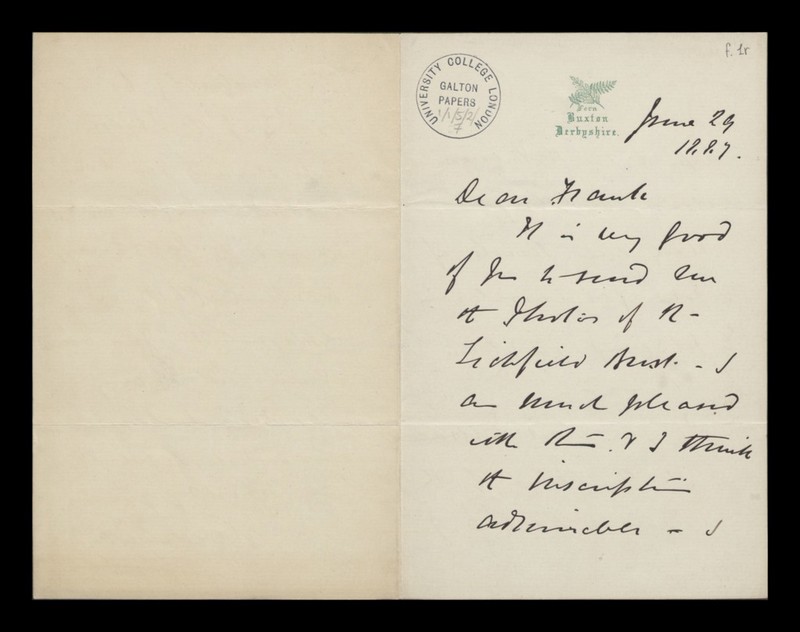 f. 1r
UNIVERSITY COLLEGE LONDON
GALTON
PAPERS
1/1/5/2/
7
Fern
Buxton
Derbyshire.
June 29
1887.
Dear Frank
It is very good
of you to send me
the Photos of the
Lichfield Bust - I
am much pleased
with them. & I think
the inscription
admirable - I